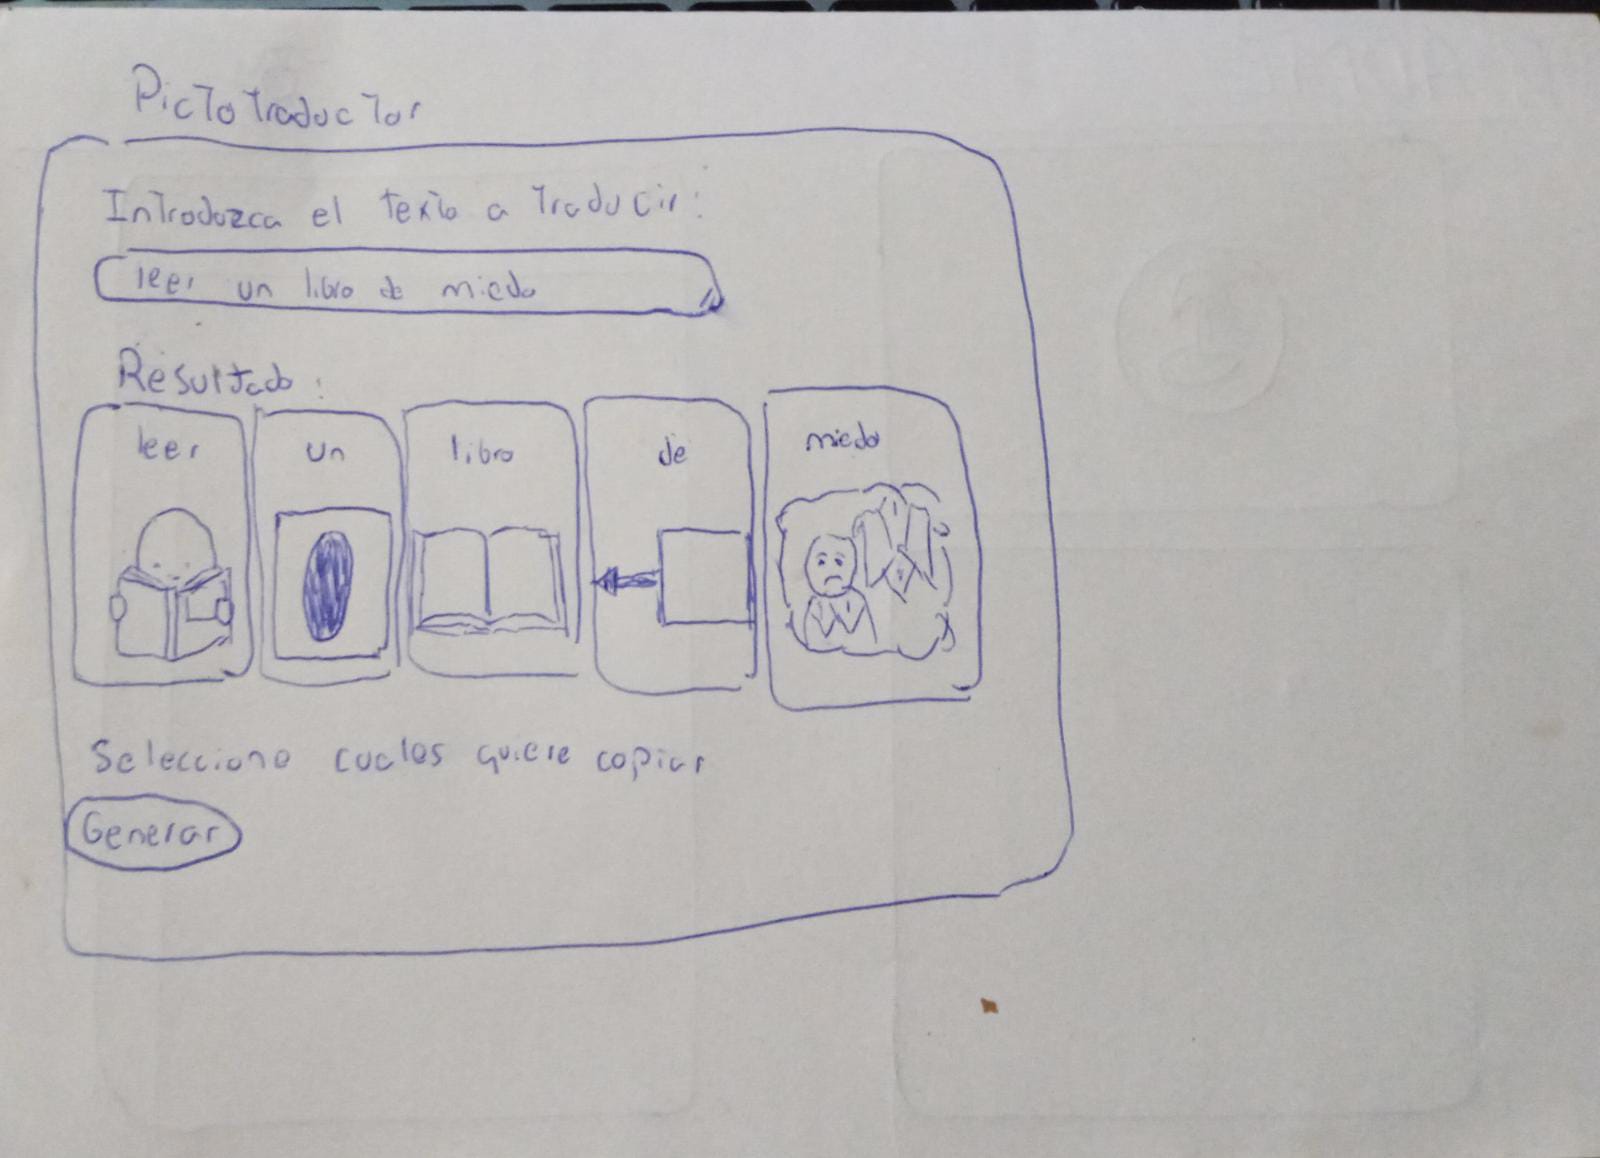 Pictotraductor
Introduzca el texto a traducir:
leer un libro de miedo
Resultado:
leer un libro de miedo
Seleccione cuales quiere copiar
Generar